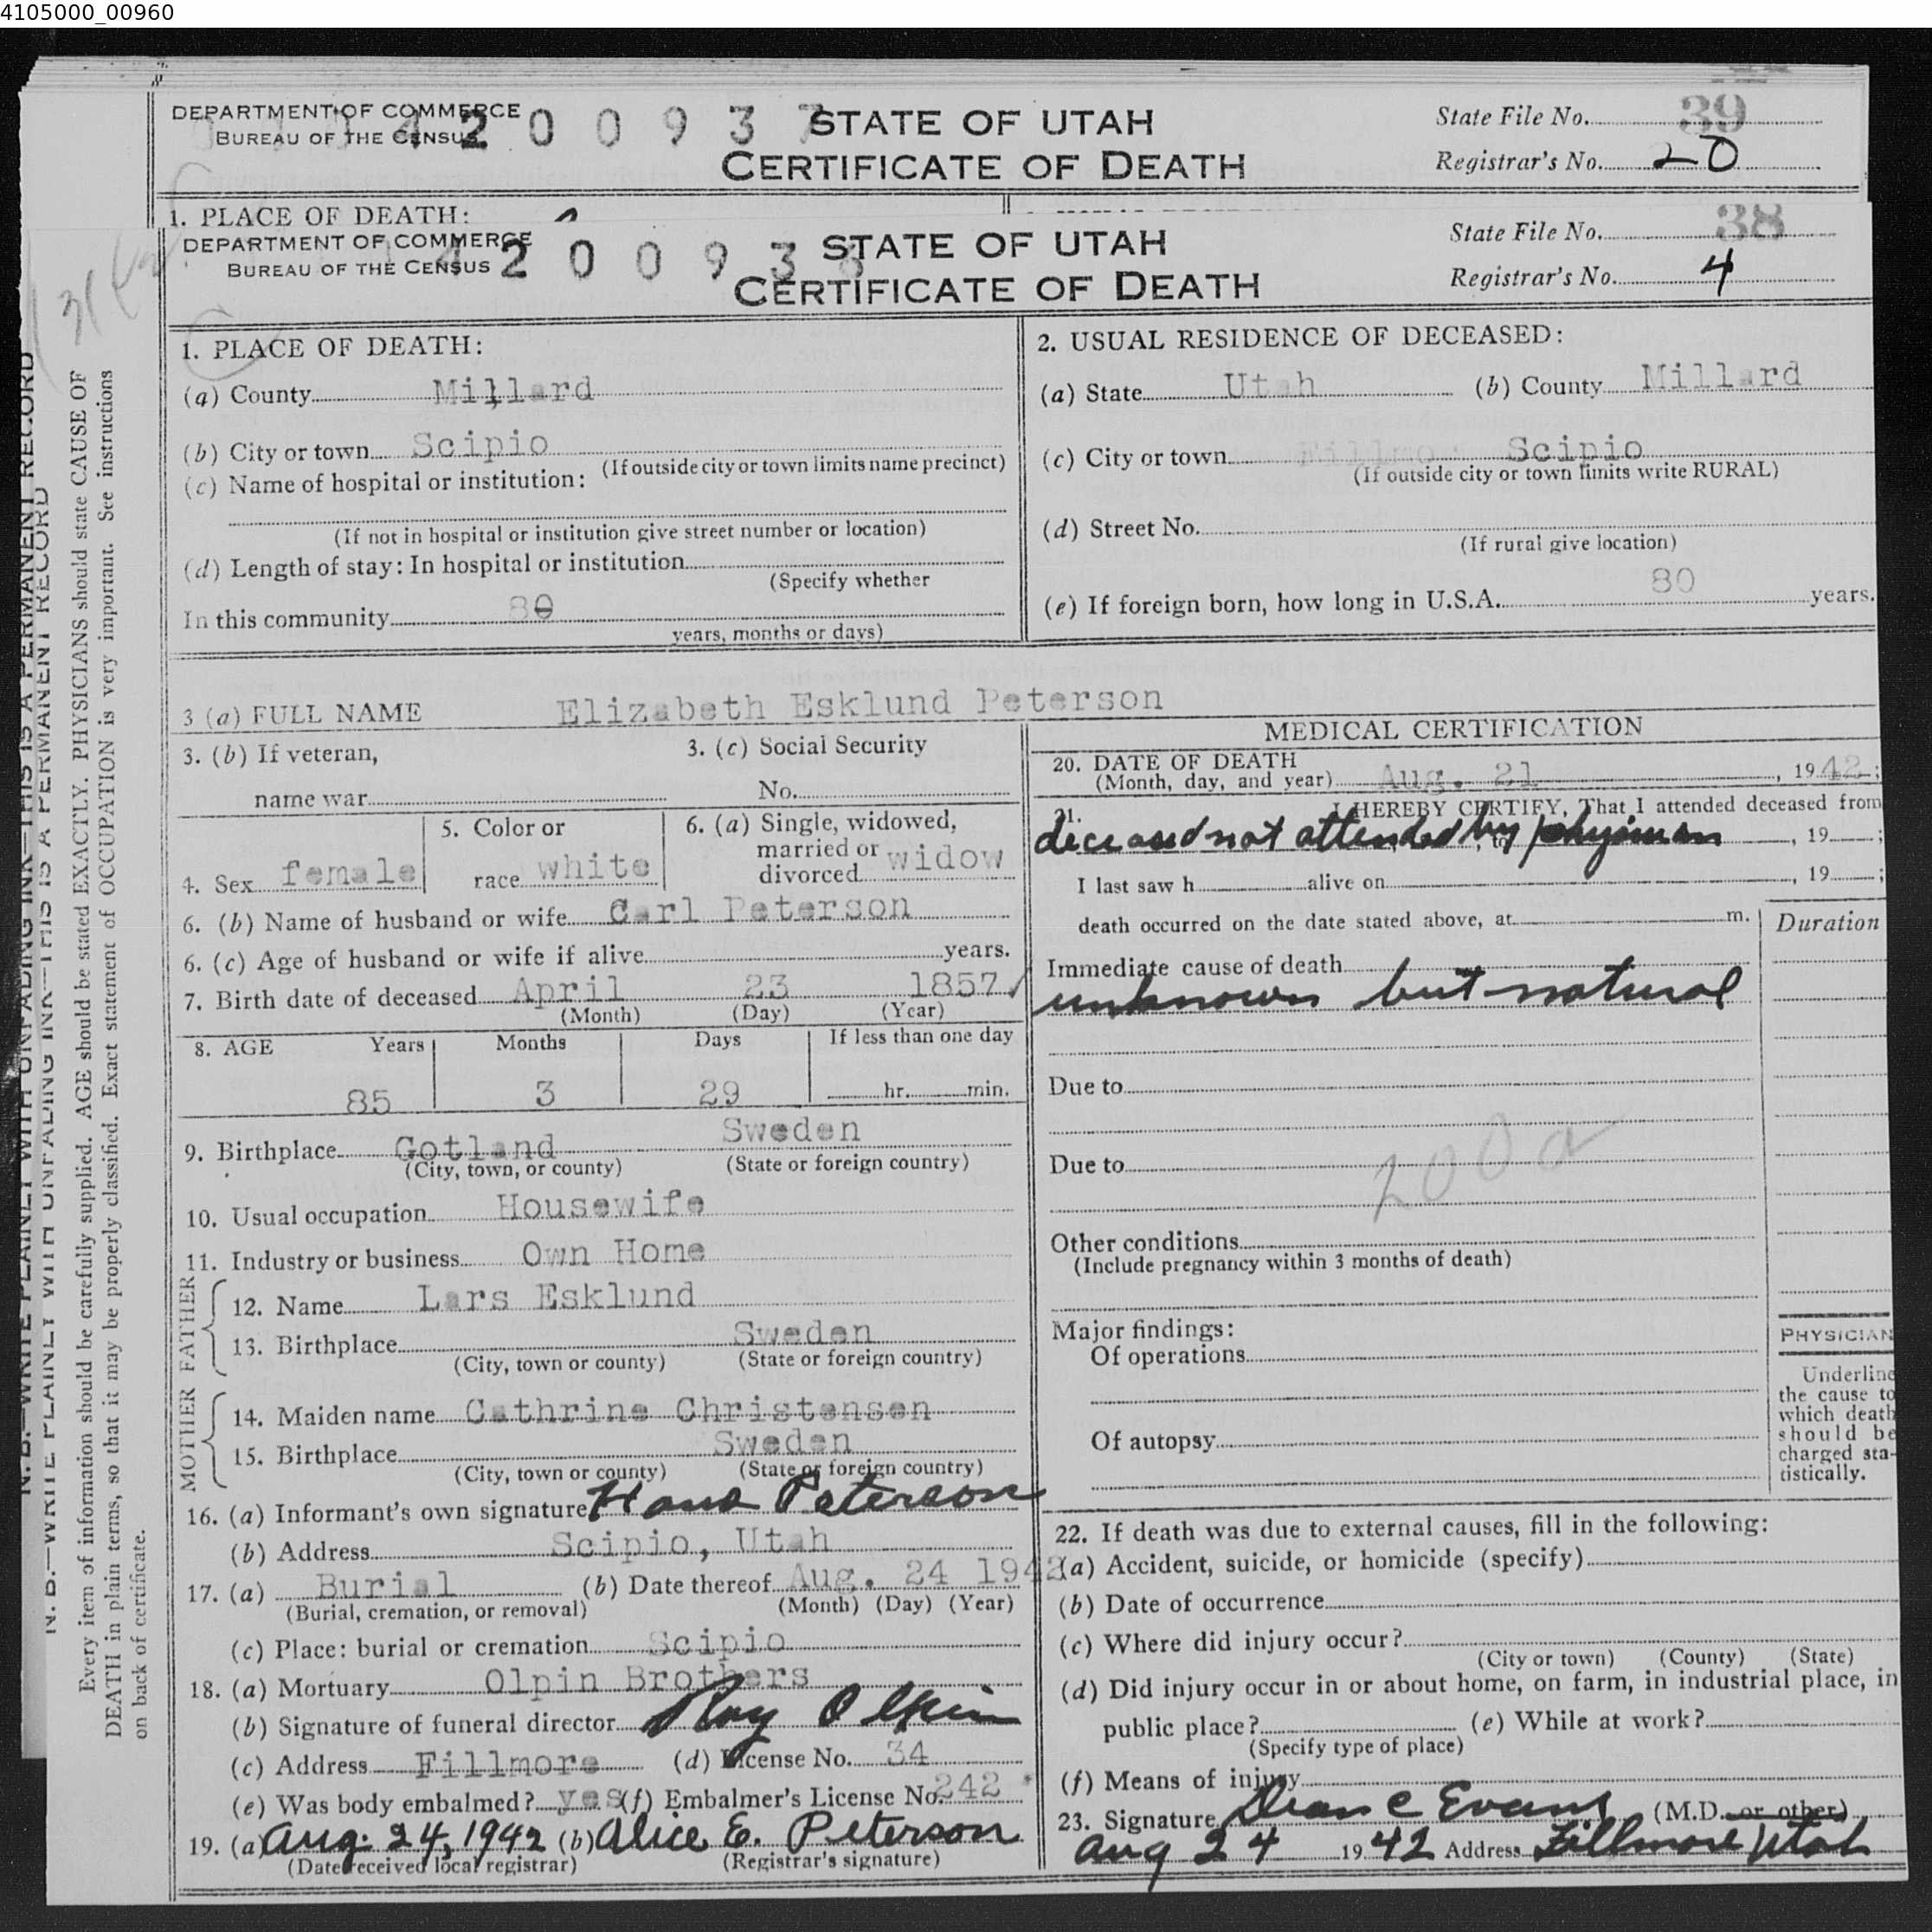 4105000_00960
DEPARTMENT OF COMMERCE
BUREAU OF THE CENSUS
4200937
STATE OF UTAH
CERTIFICATE OF DEATH
State File No. 39
Registrar's No. 20
1. PLACE OF DEATH:
DEPARTMENT OF COMMERCE
BUREAU OF THE CENSUS
4200938
STATE OF UTAH
CERTIFICATE OF DEATH
State File No. 38
Registrar's No. 4
1. PLACE OF DEATH:
(a) County Millard
(b) City or town Scipio
(If outside city or town limits name precinct)
(c) Name of hospital or institution:
(If not in hospital or institution give street number or location)
(d) Length of stay: In hospital or institution
(Specify whether
In this community 80
years, months or days)
2. USUAL RESIDENCE OF DECEASED:
(a) State Utah (b) County Millard
(c) City or town Scipio
(If outside city or town limits write RURAL)
(d) Street No.
(If rural give location)
(e) If foreign born, how long in U.S.A. 80 years.
3 (a) FULL NAME Elizabeth Esklund Peterson
3. (b) If veteran,
name war
3. (c) Social Security
No.
4. Sex female
5. Color or
race white
6. (a) Single, widowed,
married or
divorced widow
6. (b) Name of husband or wife Carl Peterson
6. (c) Age of husband or wife if alive years.
7. Birth date of deceased April 23 1857
(Month) (Day) (Year)
8. AGE Years Months Days If less than one day
85 3 29 hr. min.
9. Birthplace Gotland Sweden
(City, town, or county) (State or foreign country)
10. Usual occupation Housewife
11. Industry or business Own Home
FATHER
12. Name Lars Esklund
13. Birthplace Sweden
(City, town or county) (State or foreign country)
MOTHER
14. Maiden name Cathrine Christensen
15. Birthplace Sweden
(City, town or county) (State or foreign country)
16. (a) Informant's own signature Hans Peterson
(b) Address Scipio, Utah
17. (a) Burial (b) Date thereof Aug. 24 1942
(Burial, cremation, or removal) (Month) (Day) (Year)
(c) Place: burial or cremation Scipio
18. (a) Mortuary Olpin Brothers
(b) Signature of funeral director Roy Olpin
(c) Address Fillmore (d) License No. 34
(e) Was body embalmed? yes (f) Embalmer's License No. 242
19. (a) Aug. 24, 1942 (b) Alice E. Peterson
(Date received local registrar) (Registrar's signature)
MEDICAL CERTIFICATION
20. DATE OF DEATH
(Month, day, and year) Aug. 21, 1942;
21. I HEREBY CERTIFY, That I attended deceased from
deceased not attended by physician, to, 19;
I last saw h alive on, 19;
death occurred on the date stated above, at m.
Duration
Immediate cause of death
unknown but natural
Due to
Due to
200a
Other conditions
(Include pregnancy within 3 months of death)
Major findings:
Of operations
Of autopsy
PHYSICIAN
Underline
the cause to
which death
should be
charged sta-
tistically.
22. If death was due to external causes, fill in the following:
(a) Accident, suicide, or homicide (specify)
(b) Date of occurrence
(c) Where did injury occur?
(City or town) (County) (State)
(d) Did injury occur in or about home, on farm, in industrial place, in
public place? (e) While at work?
(Specify type of place)
(f) Means of injury
23. Signature Dean C Evans (M.D. or other)
Aug 24 1942 Address Fillmore Utah
N. B.—WRITE PLAINLY WITH UNFADING INK—THIS IS A PERMANENT RECORD
N. B.—WRITE PLAINLY WITH UNFADING INK—THIS IS A PERMANENT RECORD
Every item of information should be carefully supplied. AGE should be stated EXACTLY. PHYSICIANS should state CAUSE OF
DEATH in plain terms, so that it may be properly classified. Exact statement of OCCUPATION is very important. See instructions
on back of certificate.